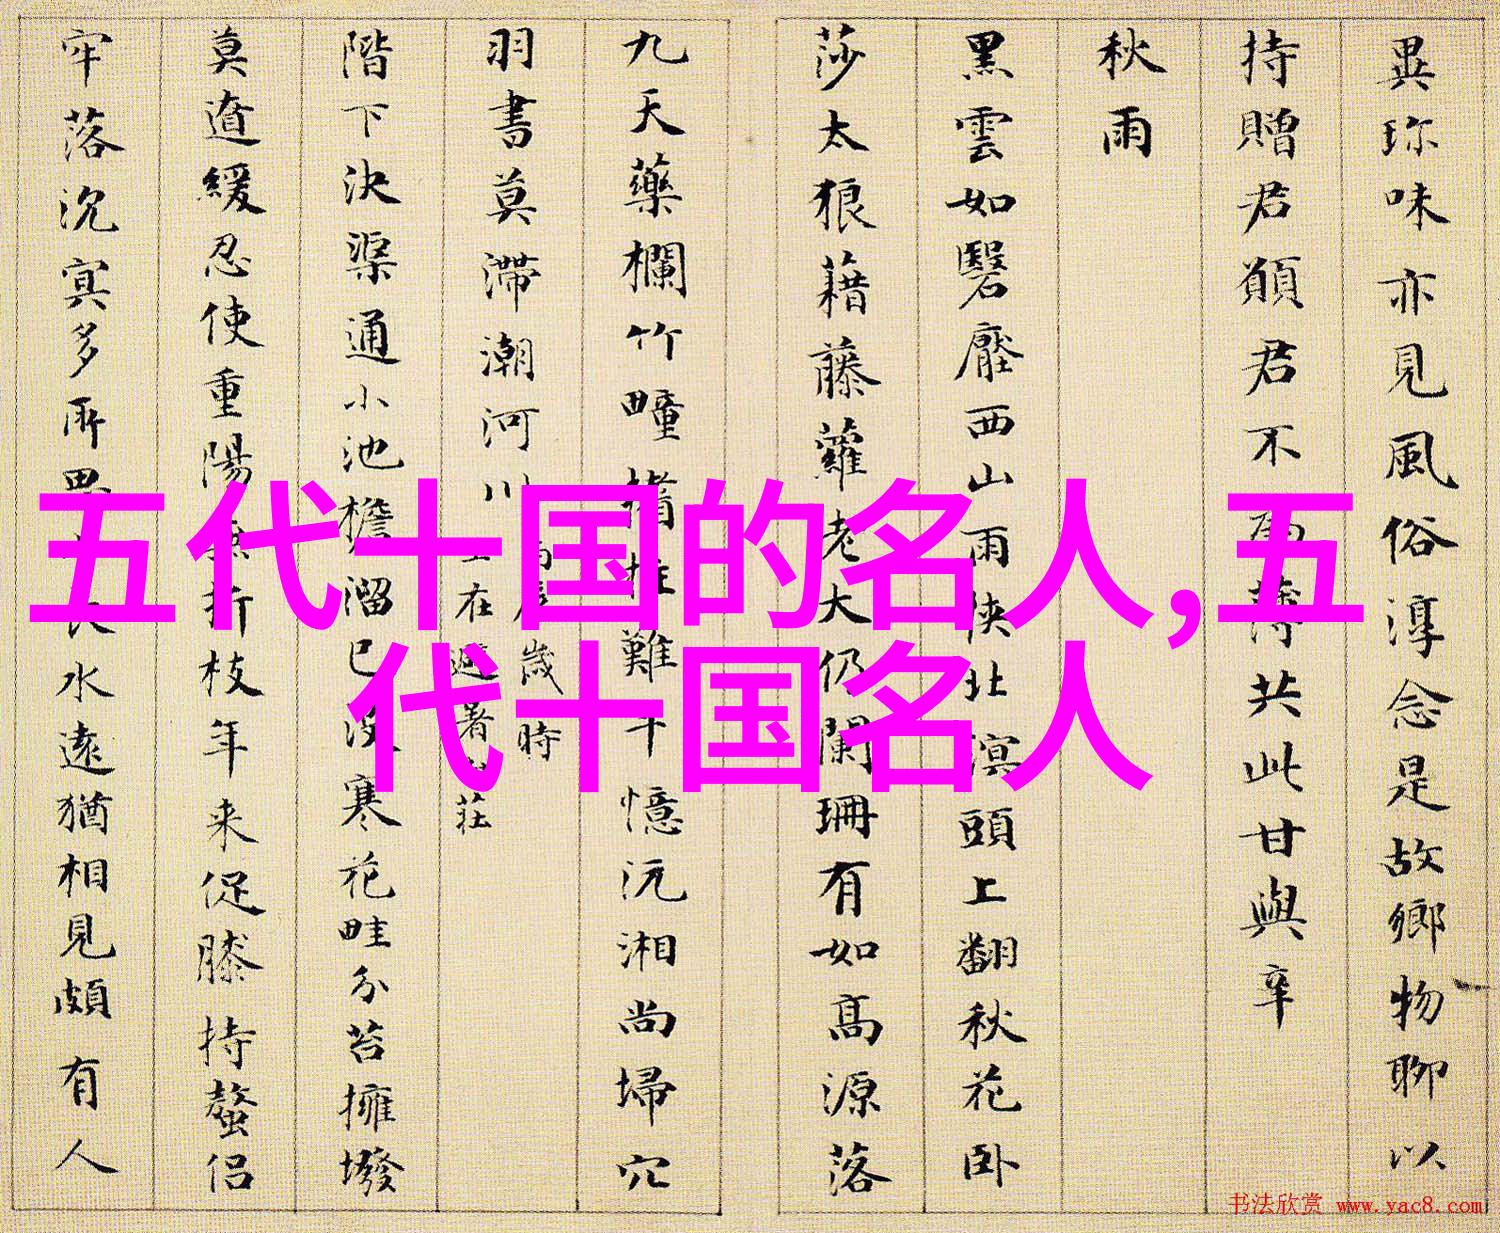 異珎味亦見風俗淳念是故鄉物聊以
持贈君願君不為薄共此甘與辛
秋雨
黑雲如翳壓西山雨陜北溟頭上翻秋花卧
莎太狼藉藤蘿老大仍闌珊有如高源落
九天藥欄竹疃揩拄難千憶沅湘尚埽穴
羽書莫滯潮河川
歲時
在避暑山莊
階下決渠通小池檐溜已沒寒花畦分苔擁墢
莫遒緩忍使重陽無折枝年来促膝持螯侶
牢落沉冥多所思 水遠猶相見頗有人
五代十国的名人,五
代十国名人
书法欣赏 www.yac8.com